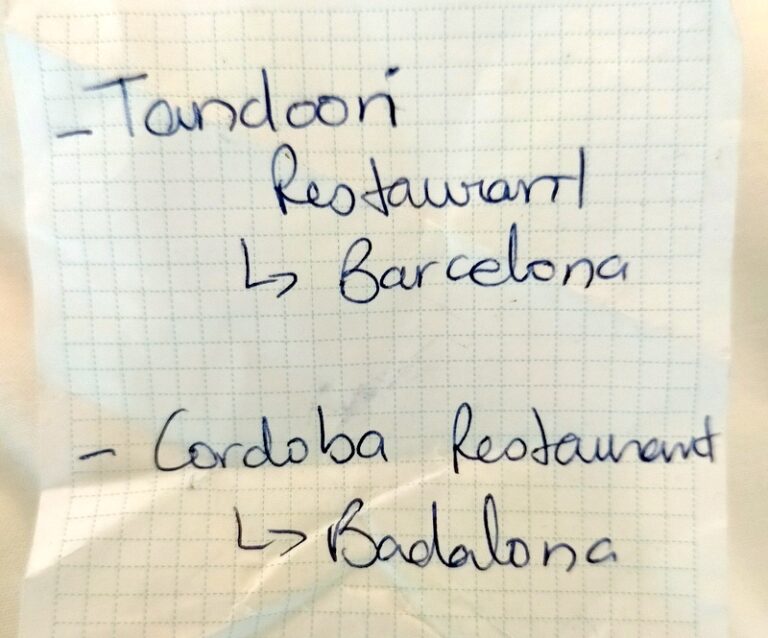 - Tandoori
Restaurant
↳ Barcelona
- Cordoba Restaurant
↳ Badalona